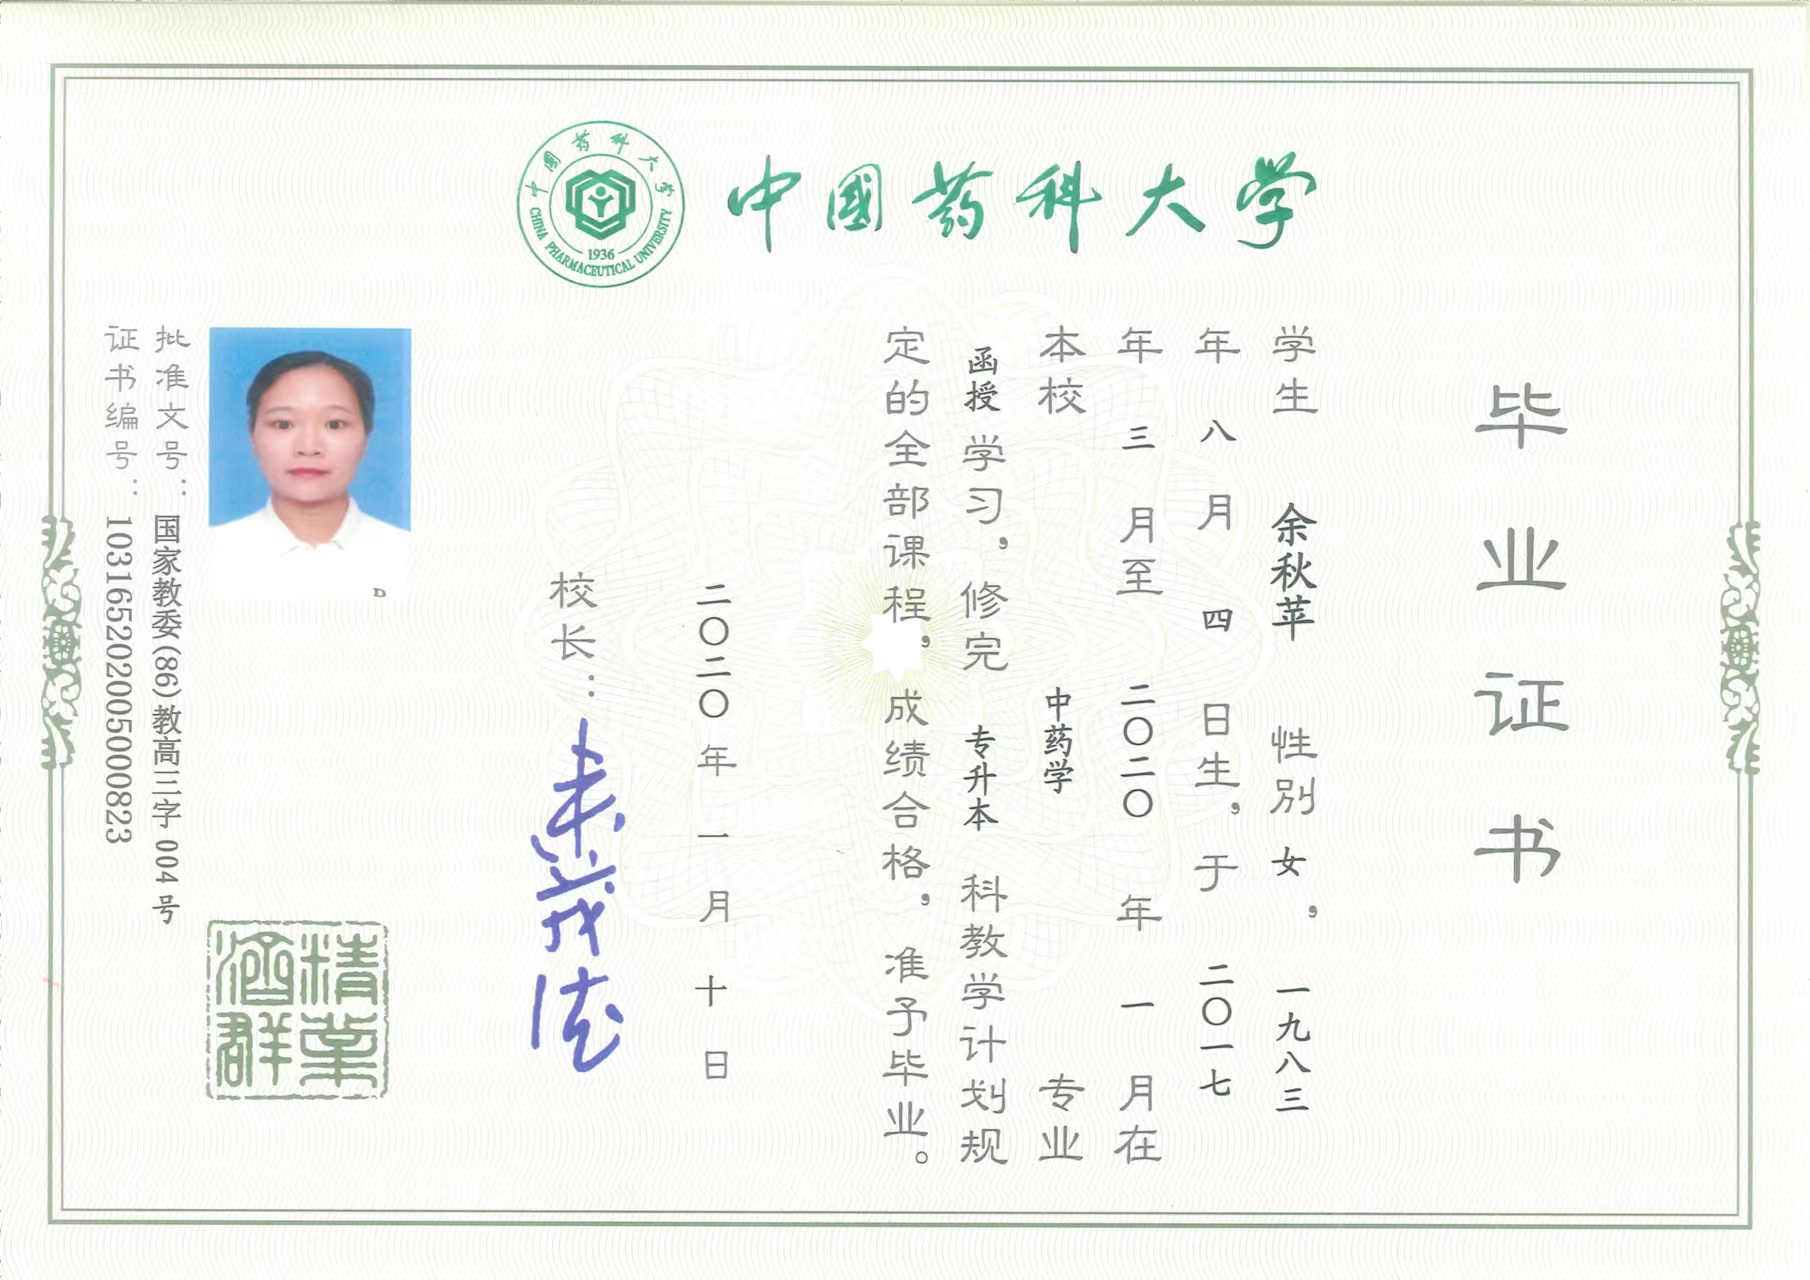 中國药科大学
中國药科大学
CHINA PHARMACEUTICAL UNIVERSITY
1936
毕业证书
学生 余秋苹 性别 女，一九八三
年 八 月 四 日生，于 二〇一七
年 三 月至 二〇二〇 年 一 月在
本校 中药学 专业
函授 学习，修完 专升本 科教学计划规
定的全部课程，成绩合格，准予毕业。
二〇二〇年 一 月 十 日
校长：来茂德
批准文号：国家教委(86)教高三字 004 号
证书编号：103165202005000823
精業
涵群